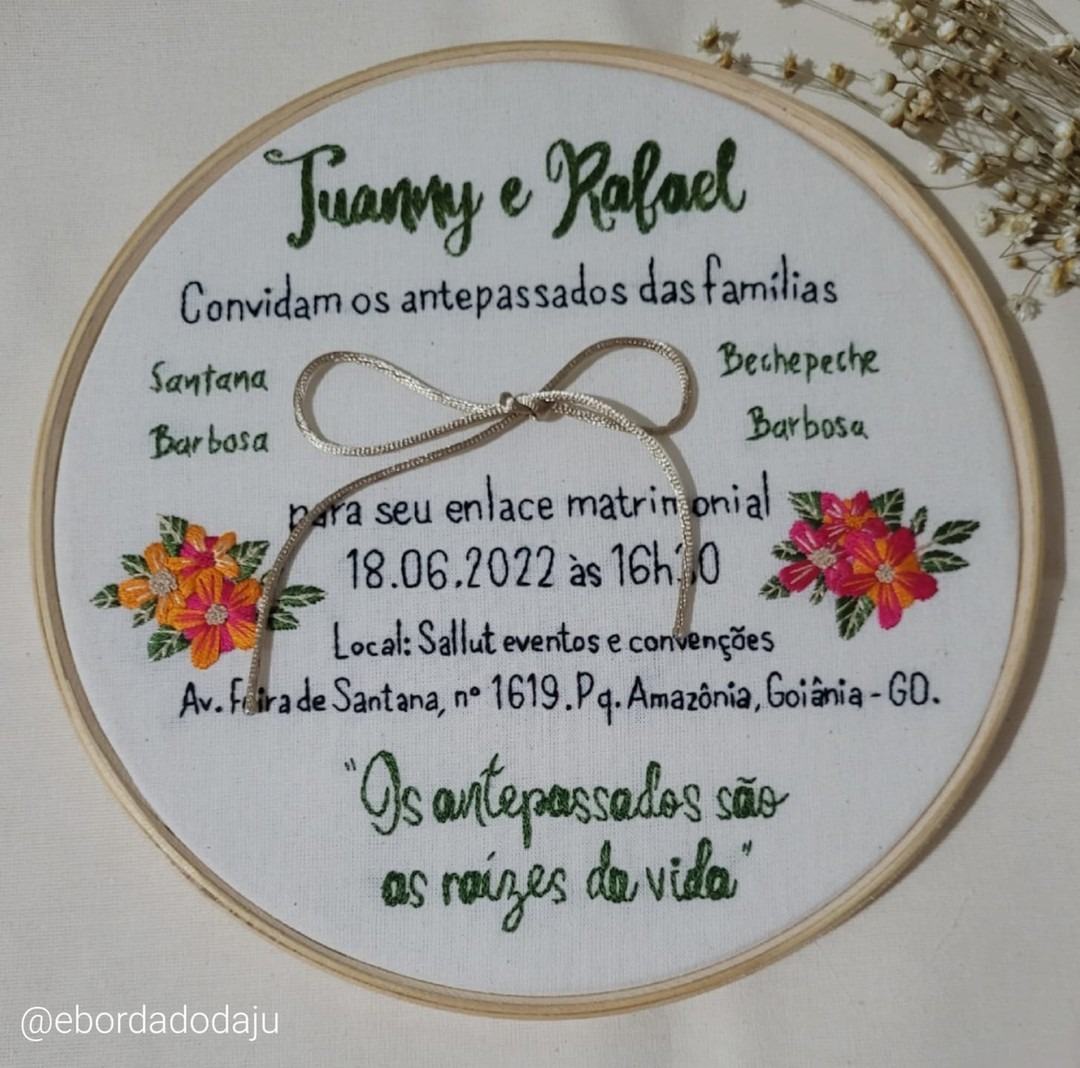 Tuanny e Rafael
Convidam os antepassados das famílias
Santana Bechepeche
Barbosa Barbosa
para seu enlace matrimonial
18.06.2022 às
Local: Sallut eventos e convenções
Av. Feira de Santana, nº 1619. Pq. Amazônia, Goiânia - GO.
"Os antepassados são
as raízes da vida"
@ebordadodaju